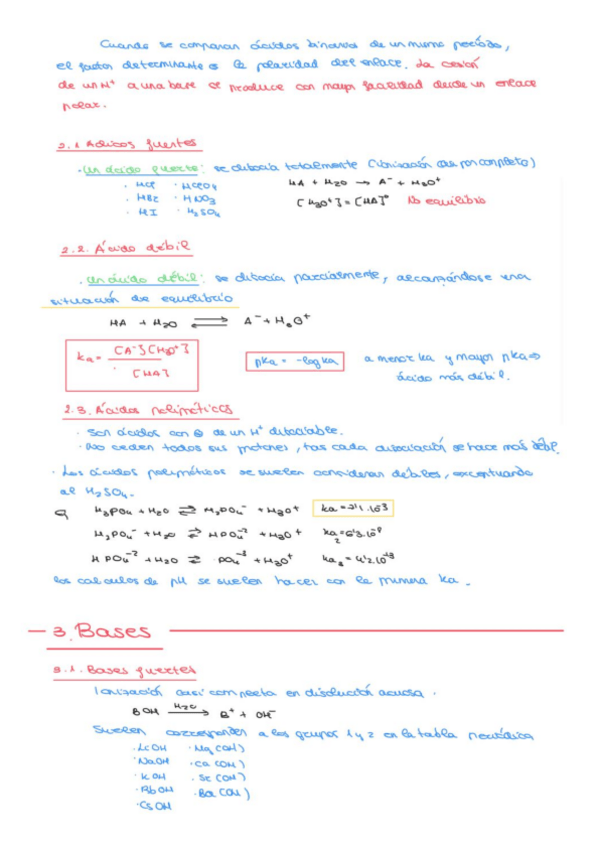 Cuando se comparan ácidos binarios de un mismo período,
el factor determinante es la polaridad del enlace. La cesión
de un H⁺ a una base se produce con mayor facilidad desde un enlace
polar.
2.1 Ácidos fuertes
· Un ácido fuerte: se disocia totalmente (ionización casi por completo)
· HCl · HClO4 HA + H2O → A⁻ + H3O⁺
· HBr · HNO3 [H3O⁺] = [HA]⁰ No equilibrio
· HI · H2SO4
2.2. Ácido débil
. Un ácido débil: se disocia parcialmente, alcanzándose una
situación de equilibrio
HA + H2O ⇌ A⁻ + H3O⁺
ka = [A⁻][H3O⁺] / [HA] pka = -log ka a menor ka y mayor pka ⇒
ácido más débil.
2.3. Ácidos polipróticos
· Son ácidos con ⊕ de un H⁺ disociable.
· No ceden todos sus protones, tras cada disociación se hace más débil.
· Los ácidos polipróticos se suelen considerar débiles, exceptuando
al H2SO4.
H3PO4 + H2O ⇌ H2PO4⁻ + H3O⁺ ka = 7'1·10⁻³
H2PO4⁻ + H2O ⇌ HPO4⁻² + H3O⁺ ka2 = 6'3·10⁻⁸
HPO4⁻² + H2O ⇌ PO4⁻³ + H3O⁺ ka3 = 4'2·10⁻¹³
los calculos de pH se suelen hacer con la primera ka.
3. Bases
3.1. Bases fuertes
Ionización casi completa en disolución acuosa.
BOH —H2O→ B⁺ + OH⁻
Suelen corresponder a los grupos 1 y 2 en la tabla periódica
· LiOH · Mg(OH)
· NaOH · Ca(OH)
· KOH · Sr(OH)
· RbOH · Ba(OH)
· CsOH